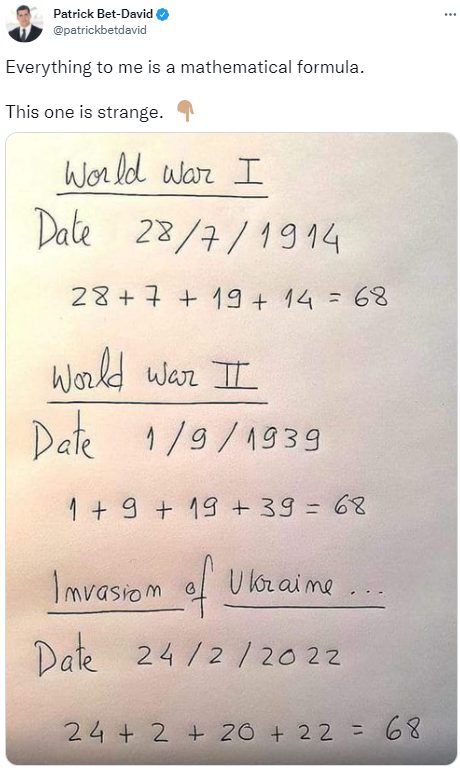 Patrick Bet-David
@patrickbetdavid
Everything to me is a mathematical formula.
This one is strange.
World War I
Date 28/7/1914
28 + 7 + 19 + 14 = 68
World War II
Date 1/9/1939
1 + 9 + 19 + 39 = 68
Invasion of Ukraine ...
Date 24/2/2022
24 + 2 + 20 + 22 = 68